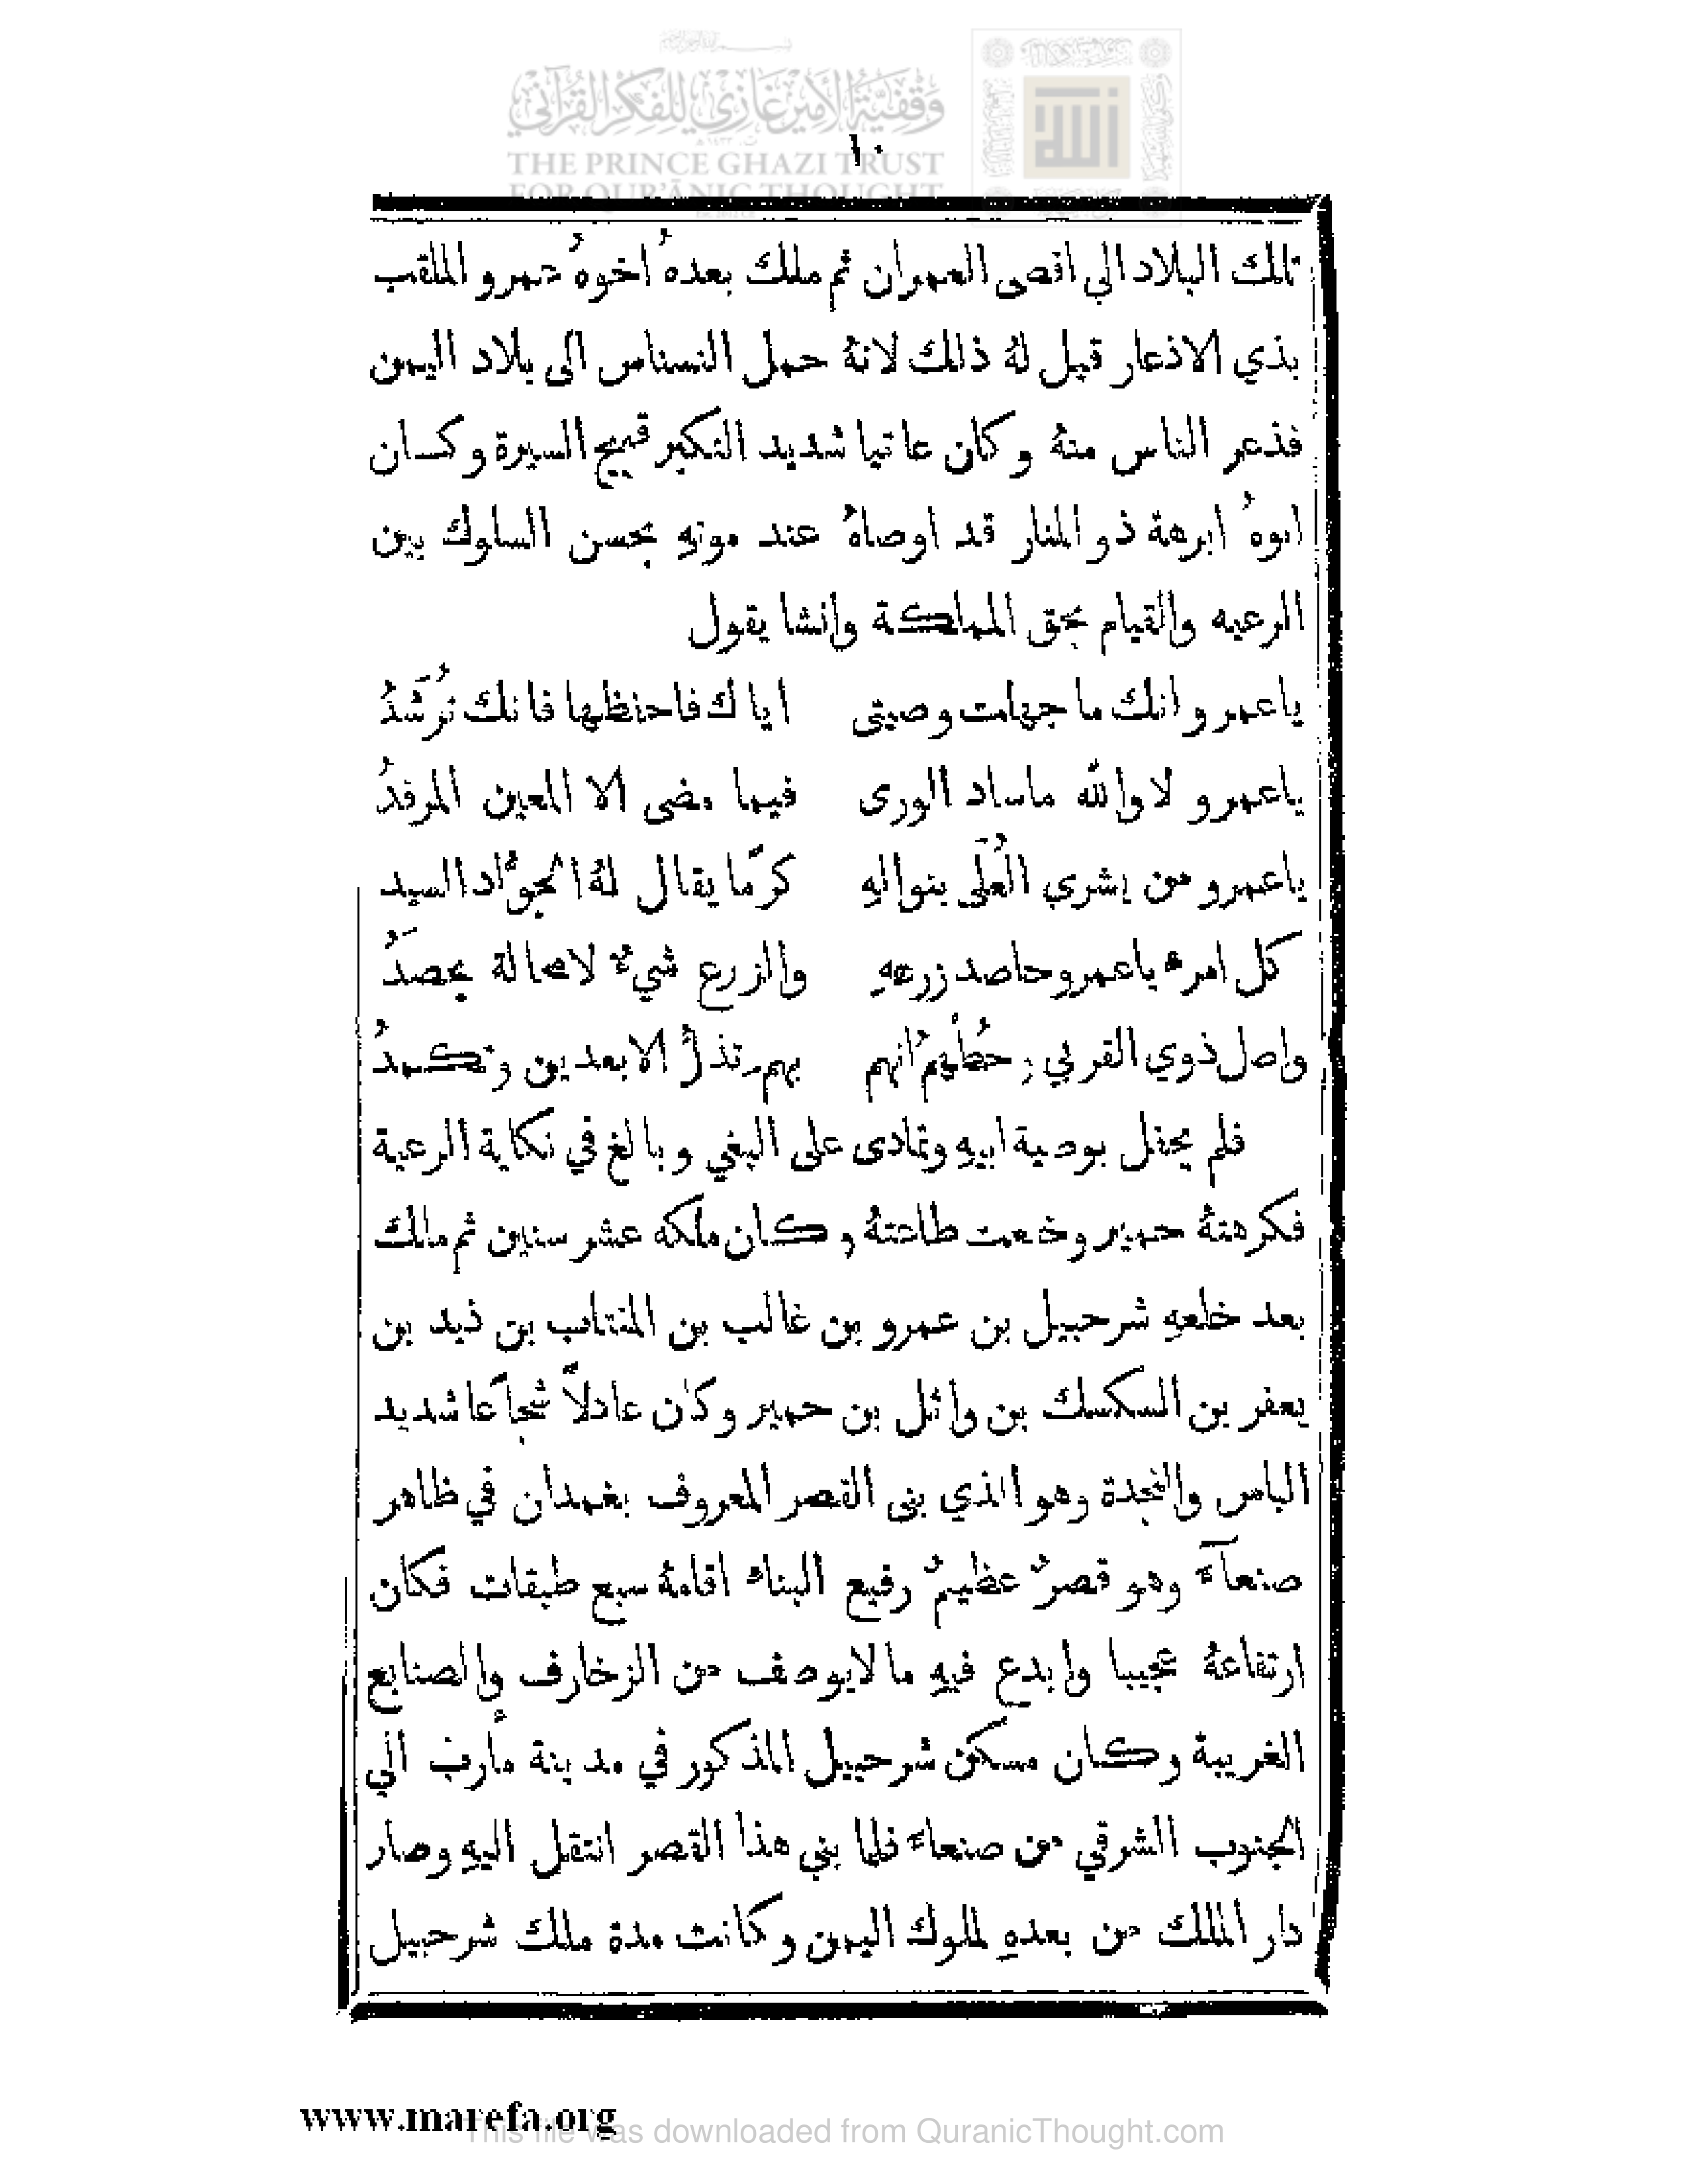 وقفية الأمير غازي للفكر القرآني
THE PRINCE GHAZI TRUST
FOR QUR'ĀNIC THOUGHT
١٠
تلك البلاد الي اقصى العمران ثم ملك بعدهُ اخوهُ عمرو الملقب
بذي الاذعار قيل لهُ ذلك لانهُ حمل النسناس الى بلاد اليمن
فذعر الناس منهُ وكان عاتيا شديد النكير قبيح السيرة وكان
ابوهُ ابرهة ذو المنار قد اوصاهُ عند موتهِ بحسن السلوك بين
الرعيه والقيام بحق المملكة وانشا يقول
ياعمرو انك ما جهلت وصيتى اياك فاحفظها فانك تُرشَدُ
ياعمرو لا والله ماساد الورى فيما مضى الا المعين المرفدُ
ياعمرو من يشري العُلَى بنوالهِ كرمًا يقال لهُ الجوَّاد السيد
كل امرء ياعمرو حاصد زرعهِ والزرع شيءٌ لا محالة يحصدُ
واصل ذوي القربي وحُطْهمُ انهم بهم تذلُّ الابعدين وتكمدُ
فلم يحفل بوصية ابيهِ وتمادى على البغي وبالغ في نكاية الرعية
فكرهتهُ حمير وخلعت طاعتهُ وكان ملكه عشر سنين ثم ملك
بعد خلعهِ شرحبيل بن عمرو بن غالب بن المنتاب بن ذيد بن
يعفر بن السكسك بن وائل بن حمير وكان عادلاً شجاعًا شديد
الباس والنجدة وهو الذي بنى القصر المعروف بغمدان في ظاهر
صنعآء وهو قصرٌ عظيمٌ رفيع البناء اقامهُ سبع طبقات فكان
ارتفاعهُ عجيبا وابدع فيهِ ما لايوصف من الزخارف والصنايع
الغريبة وكان مسكن شرحبيل المذكور في مدينة مأرب الي
الجنوب الشرقي من صنعاء فلما بني هذا القصر انتقل اليهِ وصار
دار الملك من بعدهِ لملوك اليمن وكانت مدة ملك شرحبيل
www.marefa.org
This file was downloaded from QuranicThought.com